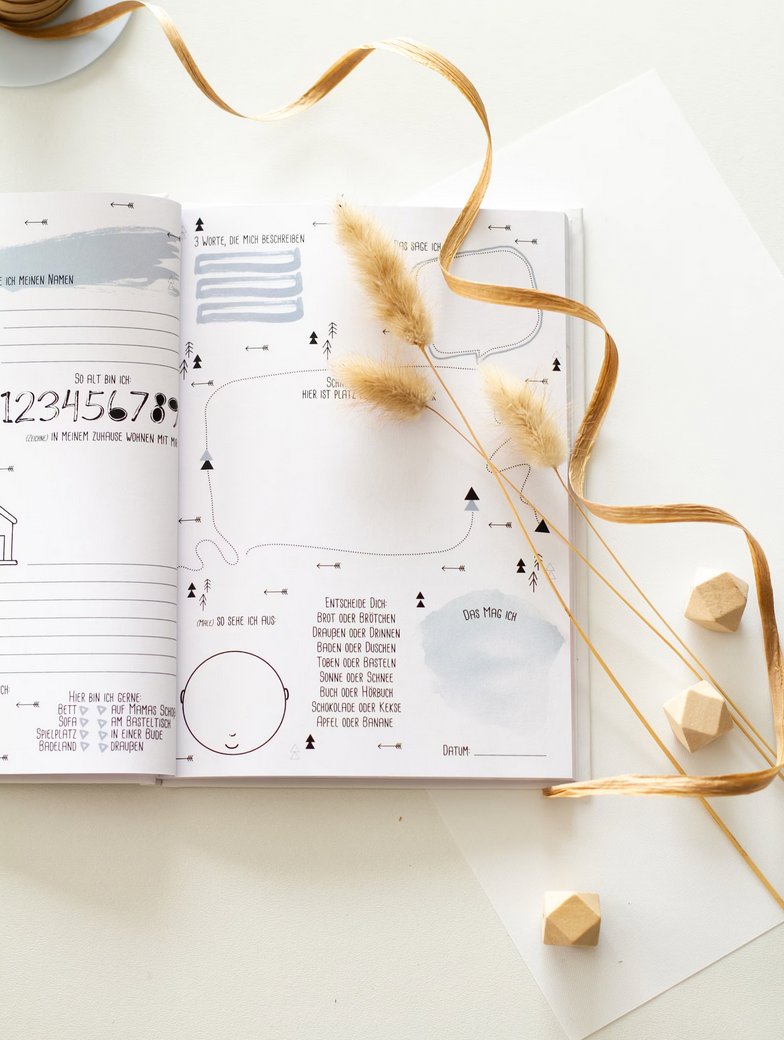 ICH MEINEN NAMEN
SO ALT BIN ICH:
123456789
(ZEICHNE) IN MEINEM ZUHAUSE WOHNEN MIT
HIER BIN ICH GERNE:
BETT AUF MAMAS
SOFA AM BASTELTISCH
SPIELPLATZ IN EINER BUDE
BADELAND DRAUßEN
3 WORTE, DIE MICH BESCHREIBEN
DAS SAGE ICH
HIER IST PLATZ
(MALE) SO SEHE ICH AUS:
ENTSCHEIDE DICH:
BROT ODER BRÖTCHEN
DRAUßEN ODER DRINNEN
BADEN ODER DUSCHEN
TOBEN ODER BASTELN
SONNE ODER SCHNEE
BUCH ODER HÖRBUCH
SCHOKOLADE ODER KEKSE
APFEL ODER BANANE
DAS MAG ICH
DATUM: